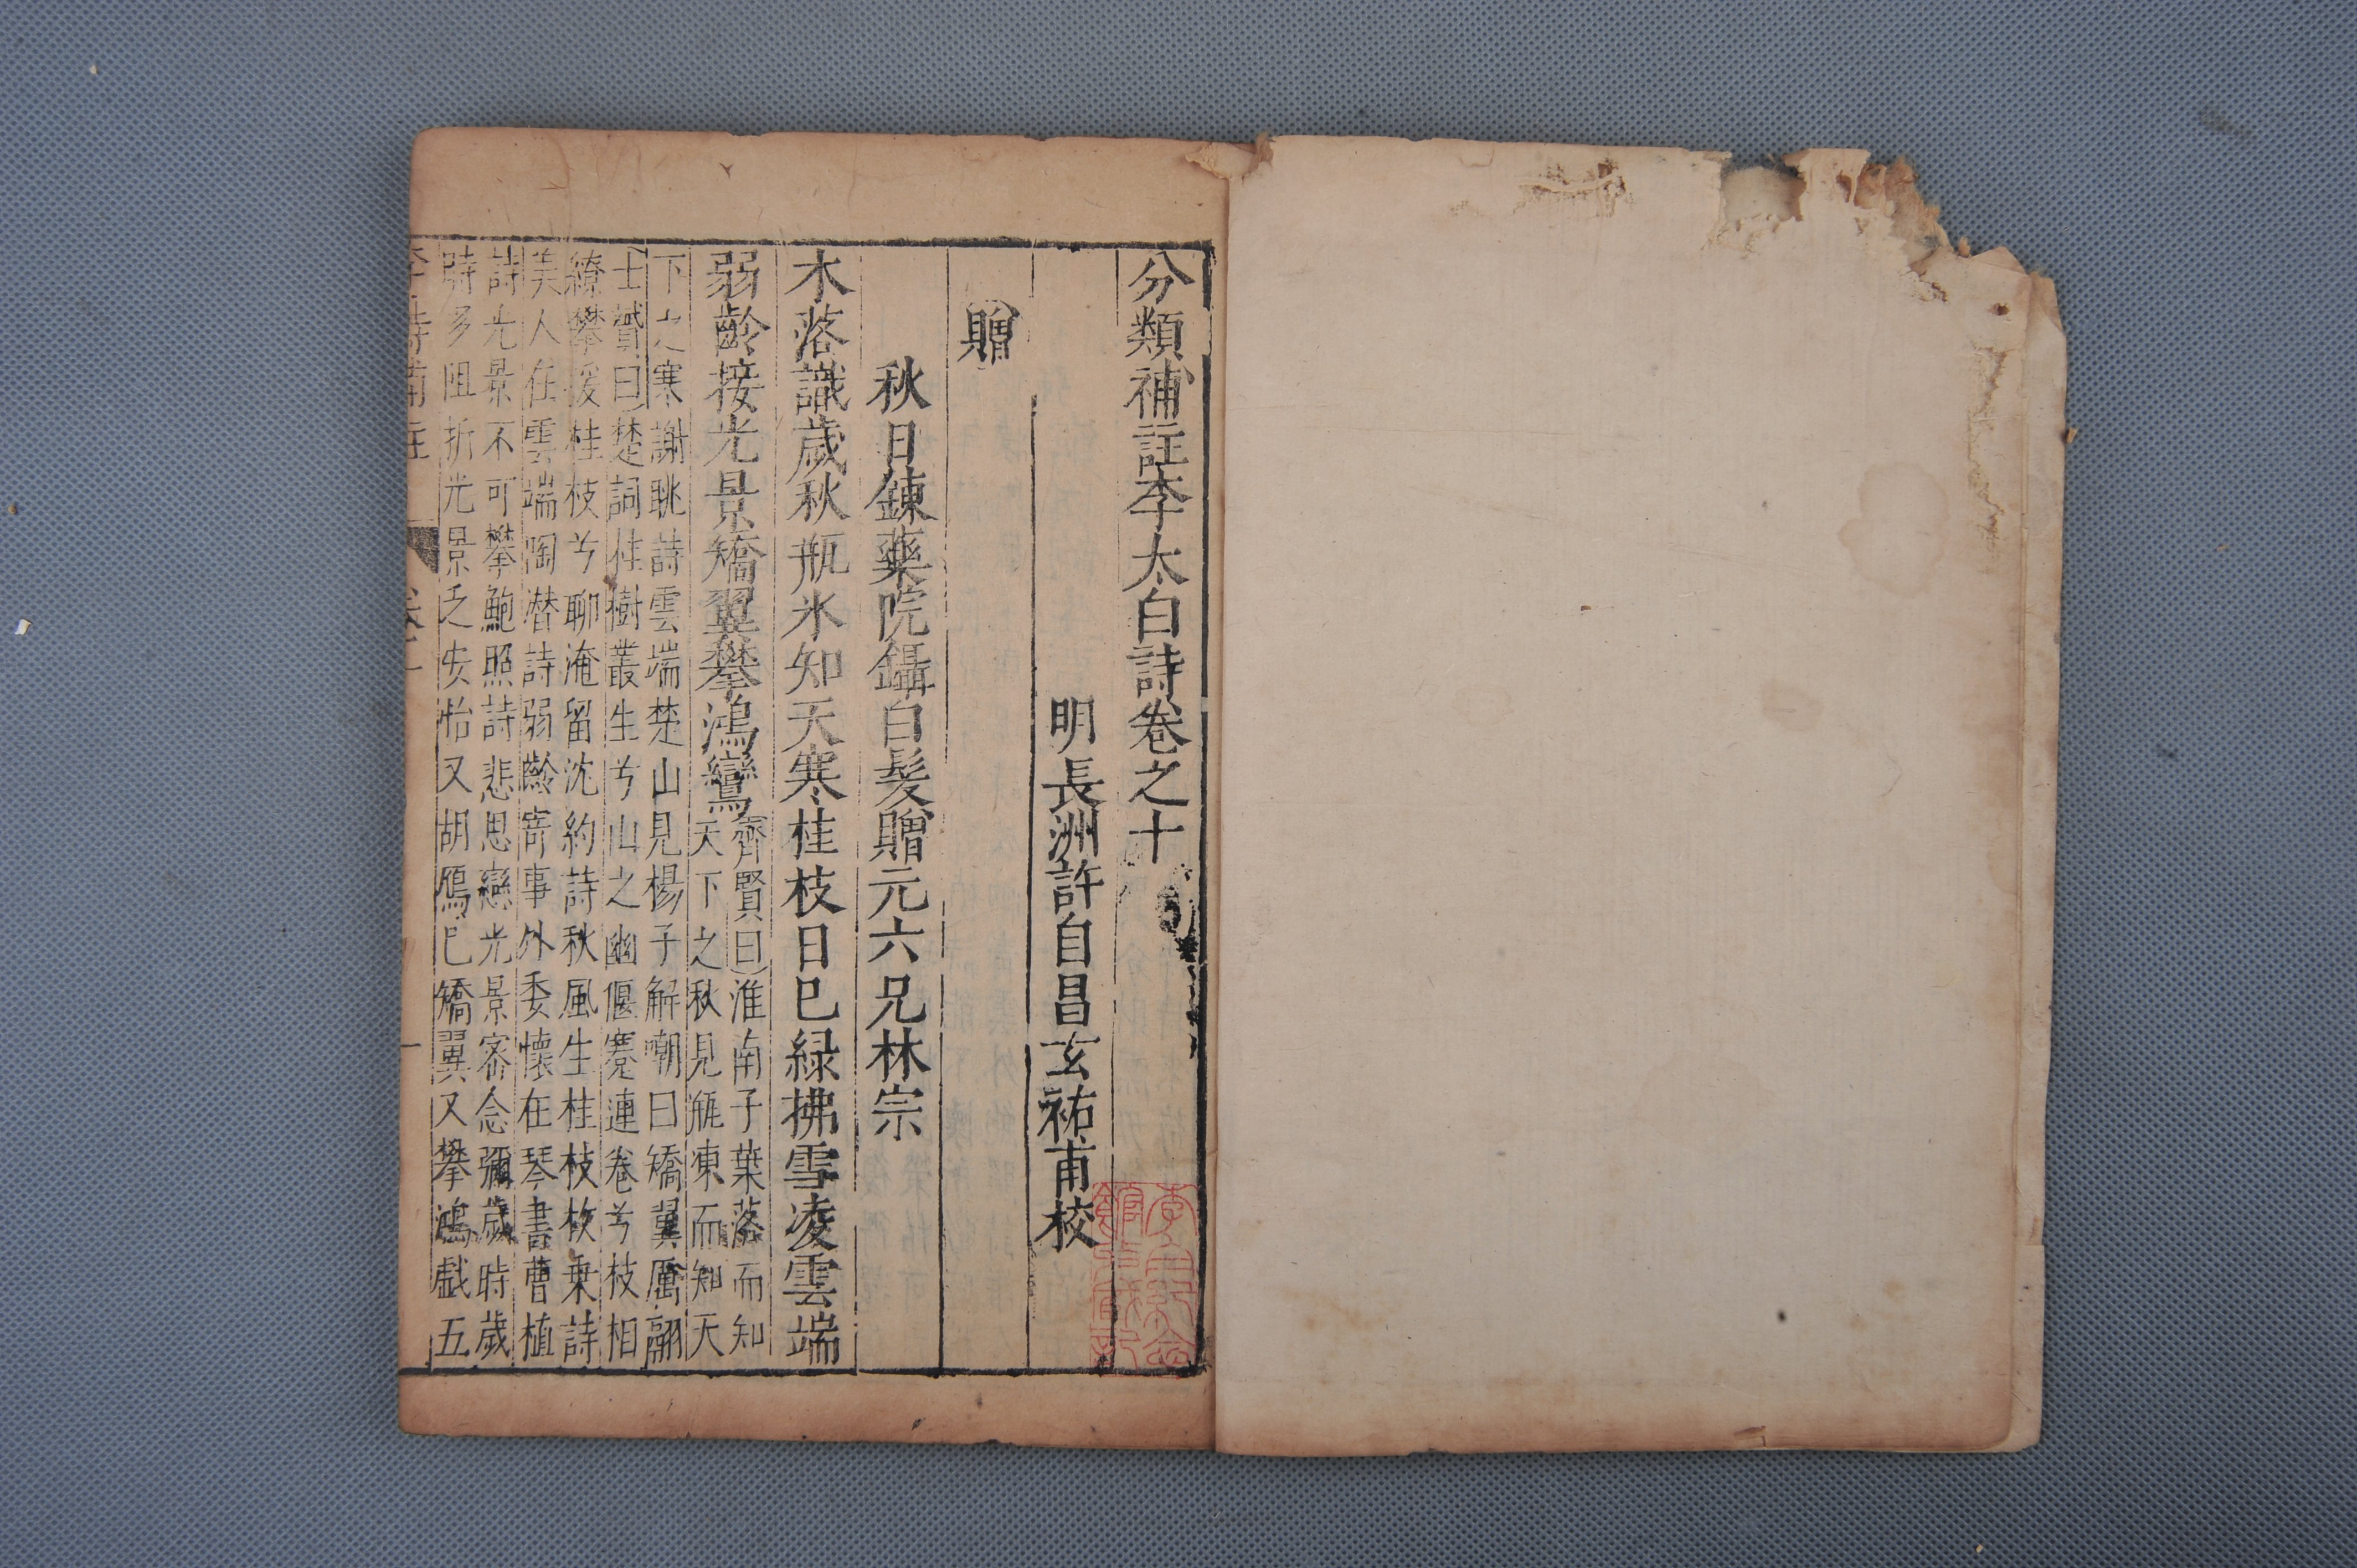 分類補註李太白詩卷之十
明長洲許自昌玄祐甫校
贈
秋日鍊藥院鑷白髮贈元六兄林宗
木落識歲秋瓶氷知天寒桂枝日已緑拂雪凌雲端
弱齡接光景矯翼攀鴻鸞
齊賢曰淮南子葉落而知
天下之秋見瓶凍而知天
下之寒謝眺詩雲端楚山見楊子解嘲曰矯翼厲翮
士贇曰楚詞桂樹叢生兮山之幽偃蹇連卷兮枝相
繚攀援桂枝兮聊淹留沈約詩秋風生桂枝枚乗詩
美人在雲端陶潛詩弱齡寄事外委懷在琴書曹植
詩光景不可攀鮑照詩悲思戀光景密念彌歲時歲
時多阻折光景乏安怡又胡鴈已矯翼又攀鴻戯五
李詩補註